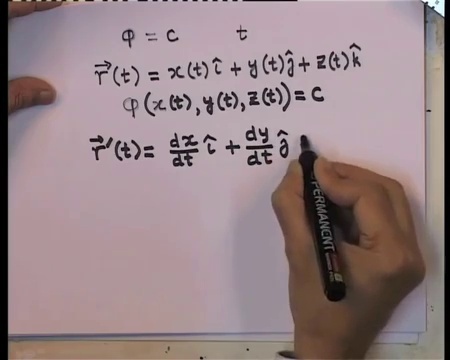 φ = c t
r⃗(t) = x(t) î + y(t) ĵ + z(t) k̂
φ(x(t), y(t), z(t)) = c
r⃗'(t) = dx/dt î + dy/dt ĵ
PERMANENT